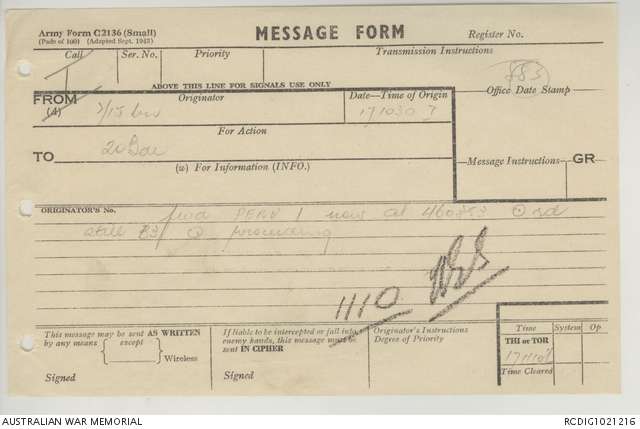 Army Form C2136 (Small)
(Pads of 100) (Adapted Sept. 1943)
MESSAGE FORM
Register No.
Call
Ser. No.
Priority
Transmission Instructions
883
ABOVE THIS LINE FOR SIGNALS USE ONLY
FROM
(A)
Originator
Date—Time of Origin
Office Date Stamp
2/15 bn
171030
For Action
TO
20 Bde
(w) For Information (INFO.)
Message Instructions
GR
ORIGINATOR'S No.
fwd PERV 1 now at 460353
still
1110
This message may be sent AS WRITTEN
by any means
except
Wireless
Signed
If liable to be intercepted or fall into
enemy hands, this message must be
sent IN CIPHER
Signed
Originator's Instructions
Degree of Priority
Time
System
Op
THI or TOR
171107
Time Cleared
AUSTRALIAN WAR MEMORIAL
RCDIG1021216